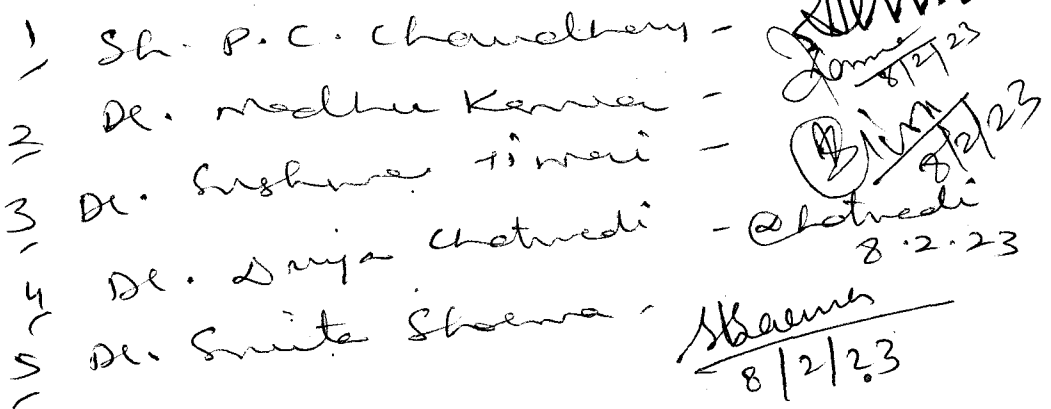 1 Sh. P. C. Chaudhary -
8/2/23
2 Dr. Madhu Kanwar -
8/2/23
3 Dr. Sushma Tiwari -
4 Dr. Divya Chaturvedi - Chaturvedi
8.2.23
5 Dr. Smita Sharma - SSharma
8/2/23